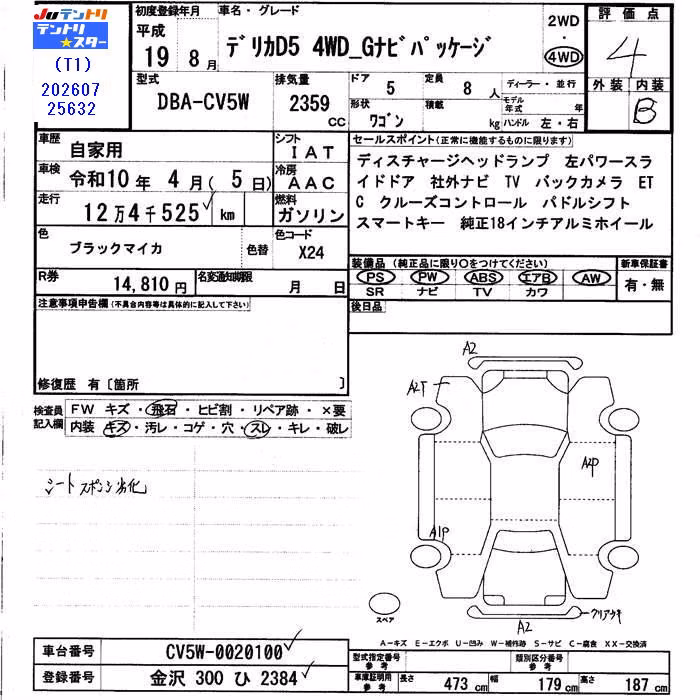 Juテントリ
テントリ
★スター
(T1)
202607
25632
初度登録年月
平成
19 8月
車名・グレード
デリカD5 4WD_Gナビパッケージ
2WD
・
4WD
評価点
4
外装 内装
B
型式
DBA-CV5W
排気量
2359
CC
ドア
5
定員
8
人
ディーラー・並行
形状
ワゴン
積載
kg
モデル年式
年
ハンドル 左・右
車歴
自家用
シフト
IAT
車検
令和10年 4月( 5日)
冷房
AAC
走行
12万4千525 km
燃料
ガソリン
色
ブラックマイカ
色替
色コード
X24
R券
14,810円
名変通知期限
月 日
セールスポイント(正常に機能するものに限ります)
ディスチャージヘッドランプ 左パワースラ
イドドア 社外ナビ TV バックカメラ ET
C クルーズコントロール パドルシフト
スマートキー 純正18インチアルミホイール
装備品(純正品に限り○をつけてください)
新車保証書
PS PW ABS エアB AW
SR ナビ TV カワ
有・無
後日品
注意事項申告欄(不具合内容等は具体的に記入して下さい)
修復歴 有〔箇所 〕
検査員
記入欄
FW キズ・飛石・ヒビ割・リペア跡・×要
内装 キズ・汚レ・コゲ・穴・スレ・キレ・破レ
シートスポンジ劣化
A2
A2T
A2P
A1P
スペア
A2
クリアハゲ
A-キズ E-エクボ U-凹み W-補修跡 S-サビ C-腐食 XX-交換済
車台番号
CV5W-0020100
登録番号
金沢 300 ひ 2384
型式指定番号
参考
類別区分番号
参考
車庫証明用
参考
長さ 473 cm 幅 179 cm 高さ 187 cm